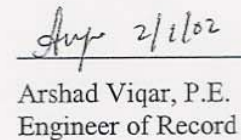 2/1/02
Arshad Viqar, P.E.
Engineer of Record